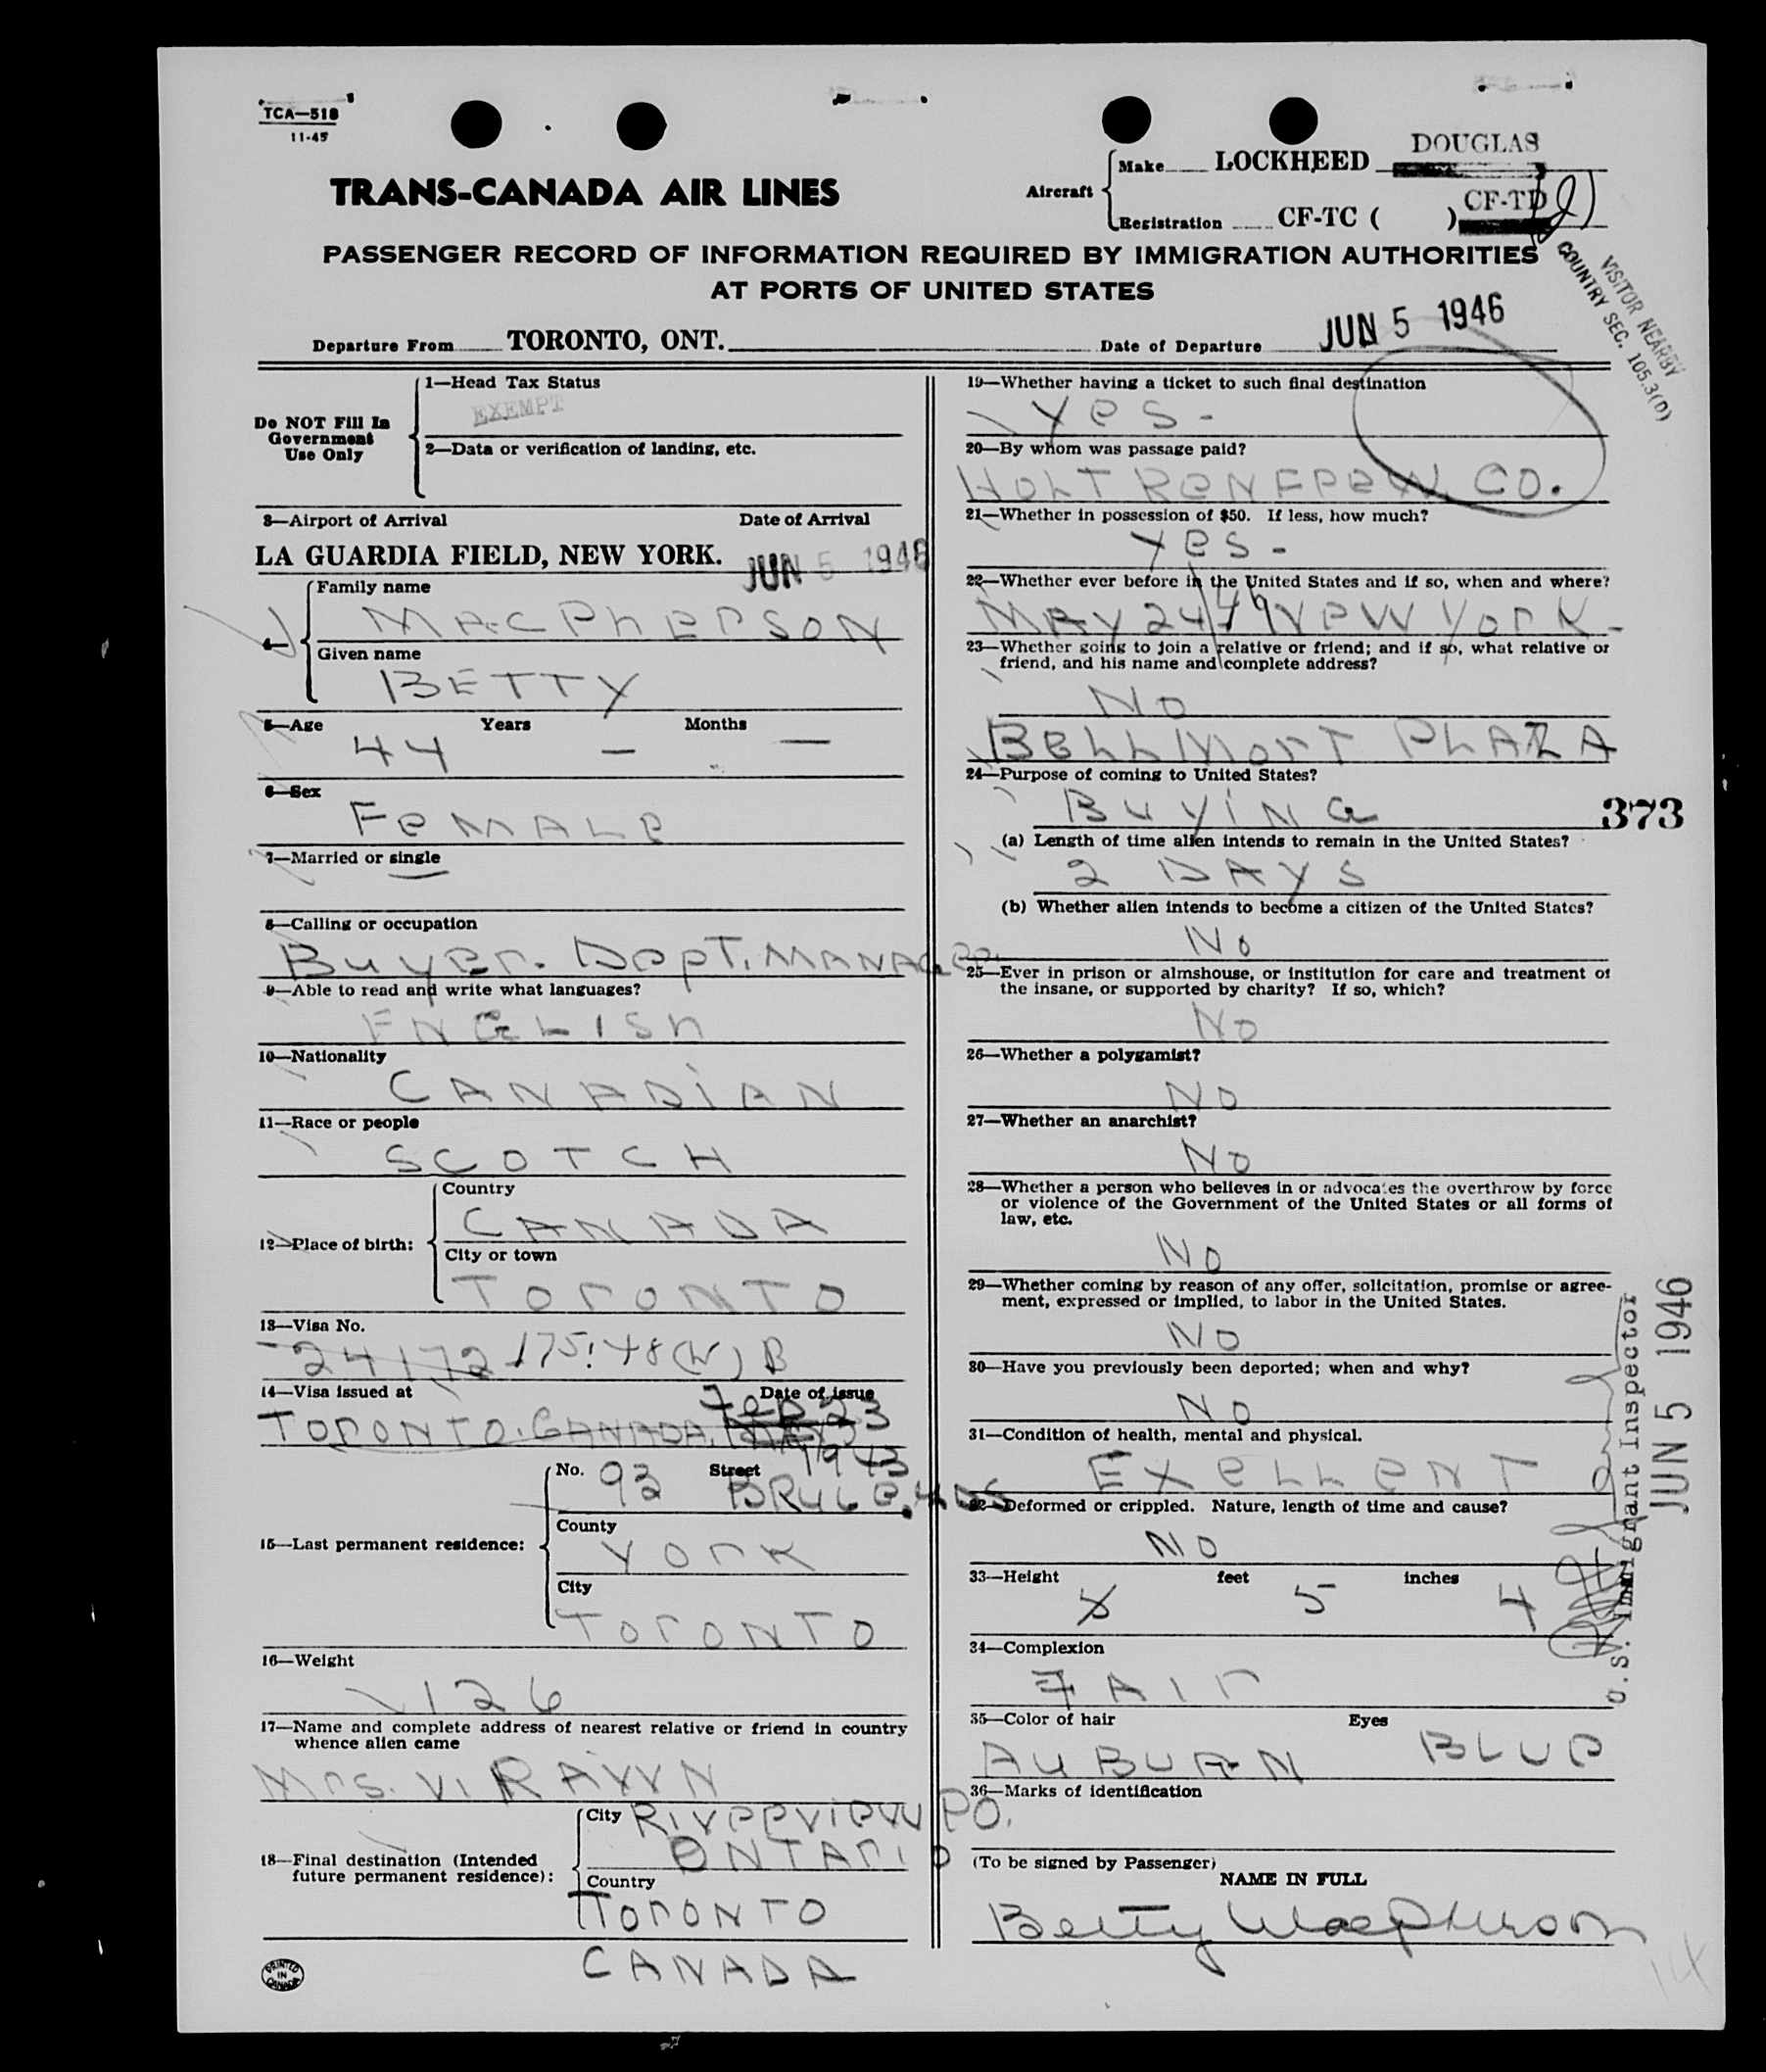 TCA—518
11-45
TRANS-CANADA AIR LINES
Aircraft
Make LOCKHEED DOUGLAS
Registration CF-TC ( ) CF-TD
PASSENGER RECORD OF INFORMATION REQUIRED BY IMMIGRATION AUTHORITIES
AT PORTS OF UNITED STATES
VISITOR NEARBY
COUNTRY SEC. 105.3(D)
Departure From TORONTO, ONT. Date of Departure JUN 5 1946
Do NOT Fill In
Government
Use Only
1—Head Tax Status
EXEMPT
2—Data or verification of landing, etc.
3—Airport of Arrival Date of Arrival
LA GUARDIA FIELD, NEW YORK. JUN 5 1946
4—
Family name
MACPHERSON
Given name
BETTY
5—Age Years Months
44 — —
6—Sex
FEMALE
7—Married or single
8—Calling or occupation
Buyer. Dept. MANAGER.
9—Able to read and write what languages?
ENGLISH
10—Nationality
CANADIAN
11—Race or people
SCOTCH
12—Place of birth:
Country
CANADA
City or town
TORONTO
13—Visa No.
24172 175:48(W) B
14—Visa issued at Date of issue
TORONTO. CANADA. Feb 23
1943
15—Last permanent residence:
No. 92 Street
County
YORK
City
TORONTO
16—Weight
126
17—Name and complete address of nearest relative or friend in country
whence alien came
Mrs. V.
18—Final destination (Intended
future permanent residence):
City RIVERVIEW PO.
ONTARIO
Country
TORONTO
CANADA
PRINTED
IN
CANADA
19—Whether having a ticket to such final destination
Yes -
20—By whom was passage paid?
HOLT RENFREW CO.
21—Whether in possession of $50. If less, how much?
Yes -
22—Whether ever before in the United States and if so, when and where?
MAY 24 NEW YORK -
23—Whether going to join a relative or friend; and if so, what relative or
friend, and his name and complete address?
No
BELLMONT PLAZA
24—Purpose of coming to United States?
BUYING
373
(a) Length of time alien intends to remain in the United States?
2 DAYS
(b) Whether alien intends to become a citizen of the United States?
No
25—Ever in prison or almshouse, or institution for care and treatment of
the insane, or supported by charity? If so, which?
No
26—Whether a polygamist?
NO
27—Whether an anarchist?
No
28—Whether a person who believes in or advocates the overthrow by force
or violence of the Government of the United States or all forms of
law, etc.
NO
29—Whether coming by reason of any offer, solicitation, promise or agree-
ment, expressed or implied, to labor in the United States.
NO
30—Have you previously been deported; when and why?
No
31—Condition of health, mental and physical.
EXELLENT
32—Deformed or crippled. Nature, length of time and cause?
NO
33—Height feet inches
5 4
34—Complexion
FAIR
35—Color of hair Eyes
AUBURN BLUE
36—Marks of identification
(To be signed by Passenger)
NAME IN FULL
Betty Macpherson
U.S. Immigrant Inspector
JUN 5 1946